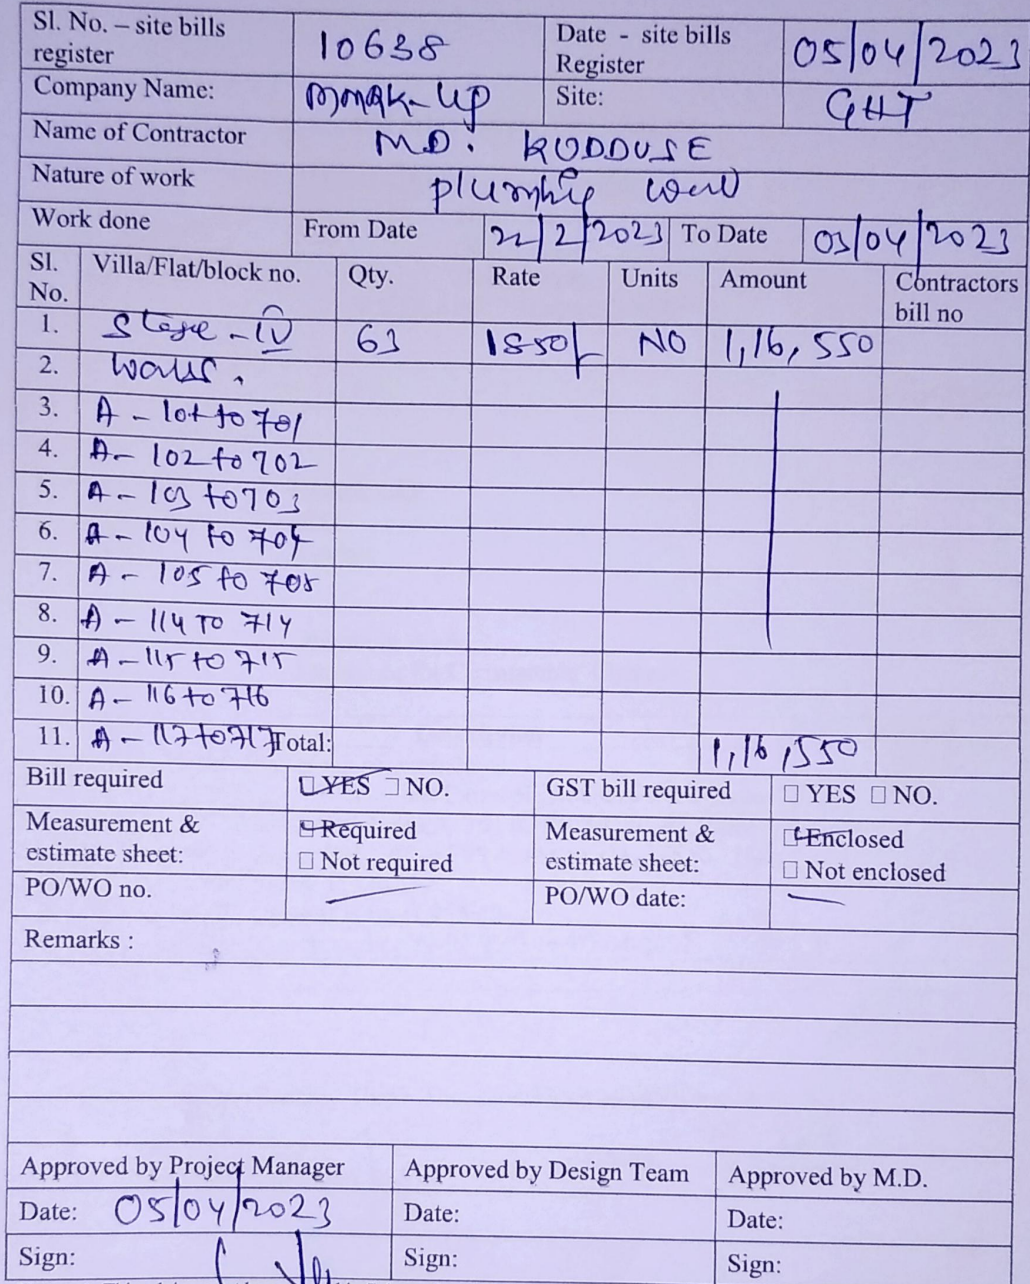 Sl. No. – site bills register 10638 Date - site bills Register 05/04/2023
Company Name: Site: GHT
Name of Contractor MD. KODDUSE
Nature of work plumbig work
Work done From Date 22/2/2023 To Date 03/04/2023
Sl. No. Villa/Flat/block no. Qty. Rate Units Amount Contractors bill no
1. Stage - IV 63 1850/- NO 1,16,550
2.
3. A - 101 to 701
4. A - 102 to 702
5. A - 103 to 703
6. A - 104 to 704
7. A - 105 to 705
8. A - 114 TO 714
9. A - 115 to 715
10. A - 116 to 716
11. A - 117 to 717 Total: 1,16,550
Bill required □ YES □ NO. GST bill required □ YES □ NO.
Measurement & estimate sheet: □ Required □ Not required Measurement & estimate sheet: □ Enclosed □ Not enclosed
PO/WO no. — PO/WO date: —
Remarks :
Approved by Project Manager Approved by Design Team Approved by M.D.
Date: 05/04/2023 Date: Date:
Sign: Sign: Sign: